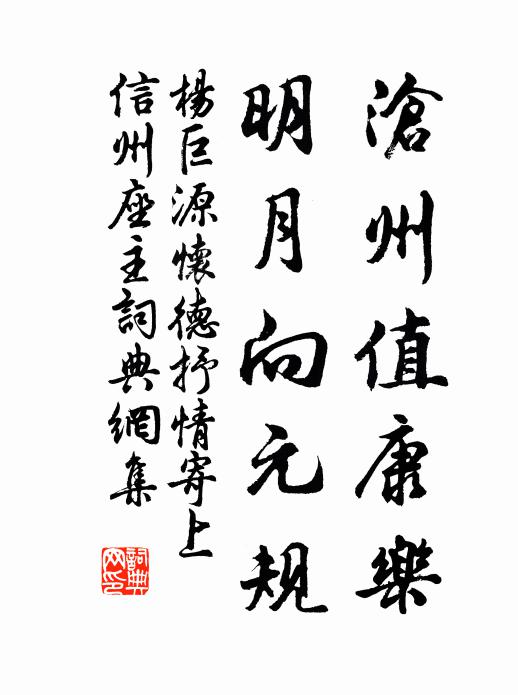 滄州值康樂
明月向元規
楊巨源懷德抒情寄上
信州座主詞典網集
詞典網印